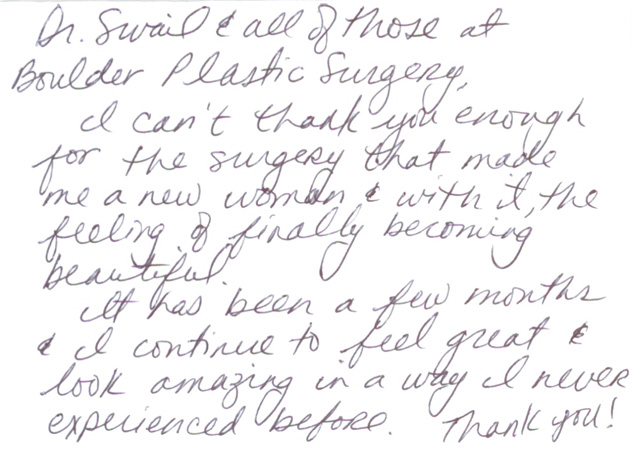 Dr. Swail & all of those at
Boulder Plastic Surgery,
I can't thank you enough
for the surgery that made
me a new woman & with it, the
feeling of finally becoming
beautiful.
It has been a few months
& I continue to feel great &
look amazing in a way I never
experienced before. Thank you!